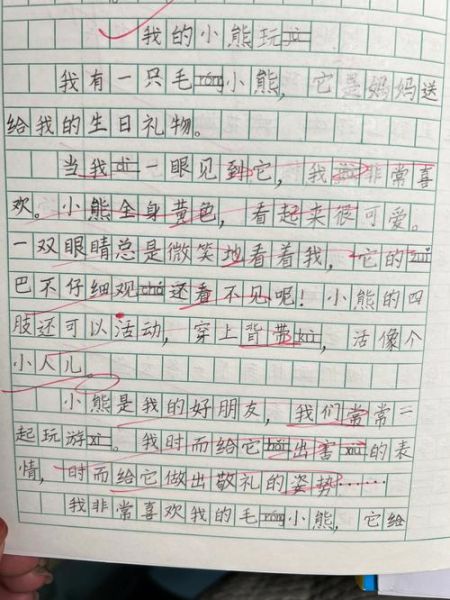 我的小熊玩jù
我有一只毛róng小熊，它是妈妈送
给我的生日礼物。
当我dì一眼见到它，我jiù非常喜
欢。小熊全身黄色，看起来很可爱。
一双眼睛总是微笑地看着我，它的zuǐ
巴不仔细观chá还看不见呢！小熊的四
肢还可以活动，穿上背带kù，活像个
小人儿。
小熊是我的好朋友，我们常常一
起玩游xì。我时而给它bǎi出害xiū的表
情，时而给它做出敬礼的姿势……
我非常喜欢我的毛róng小熊，它给